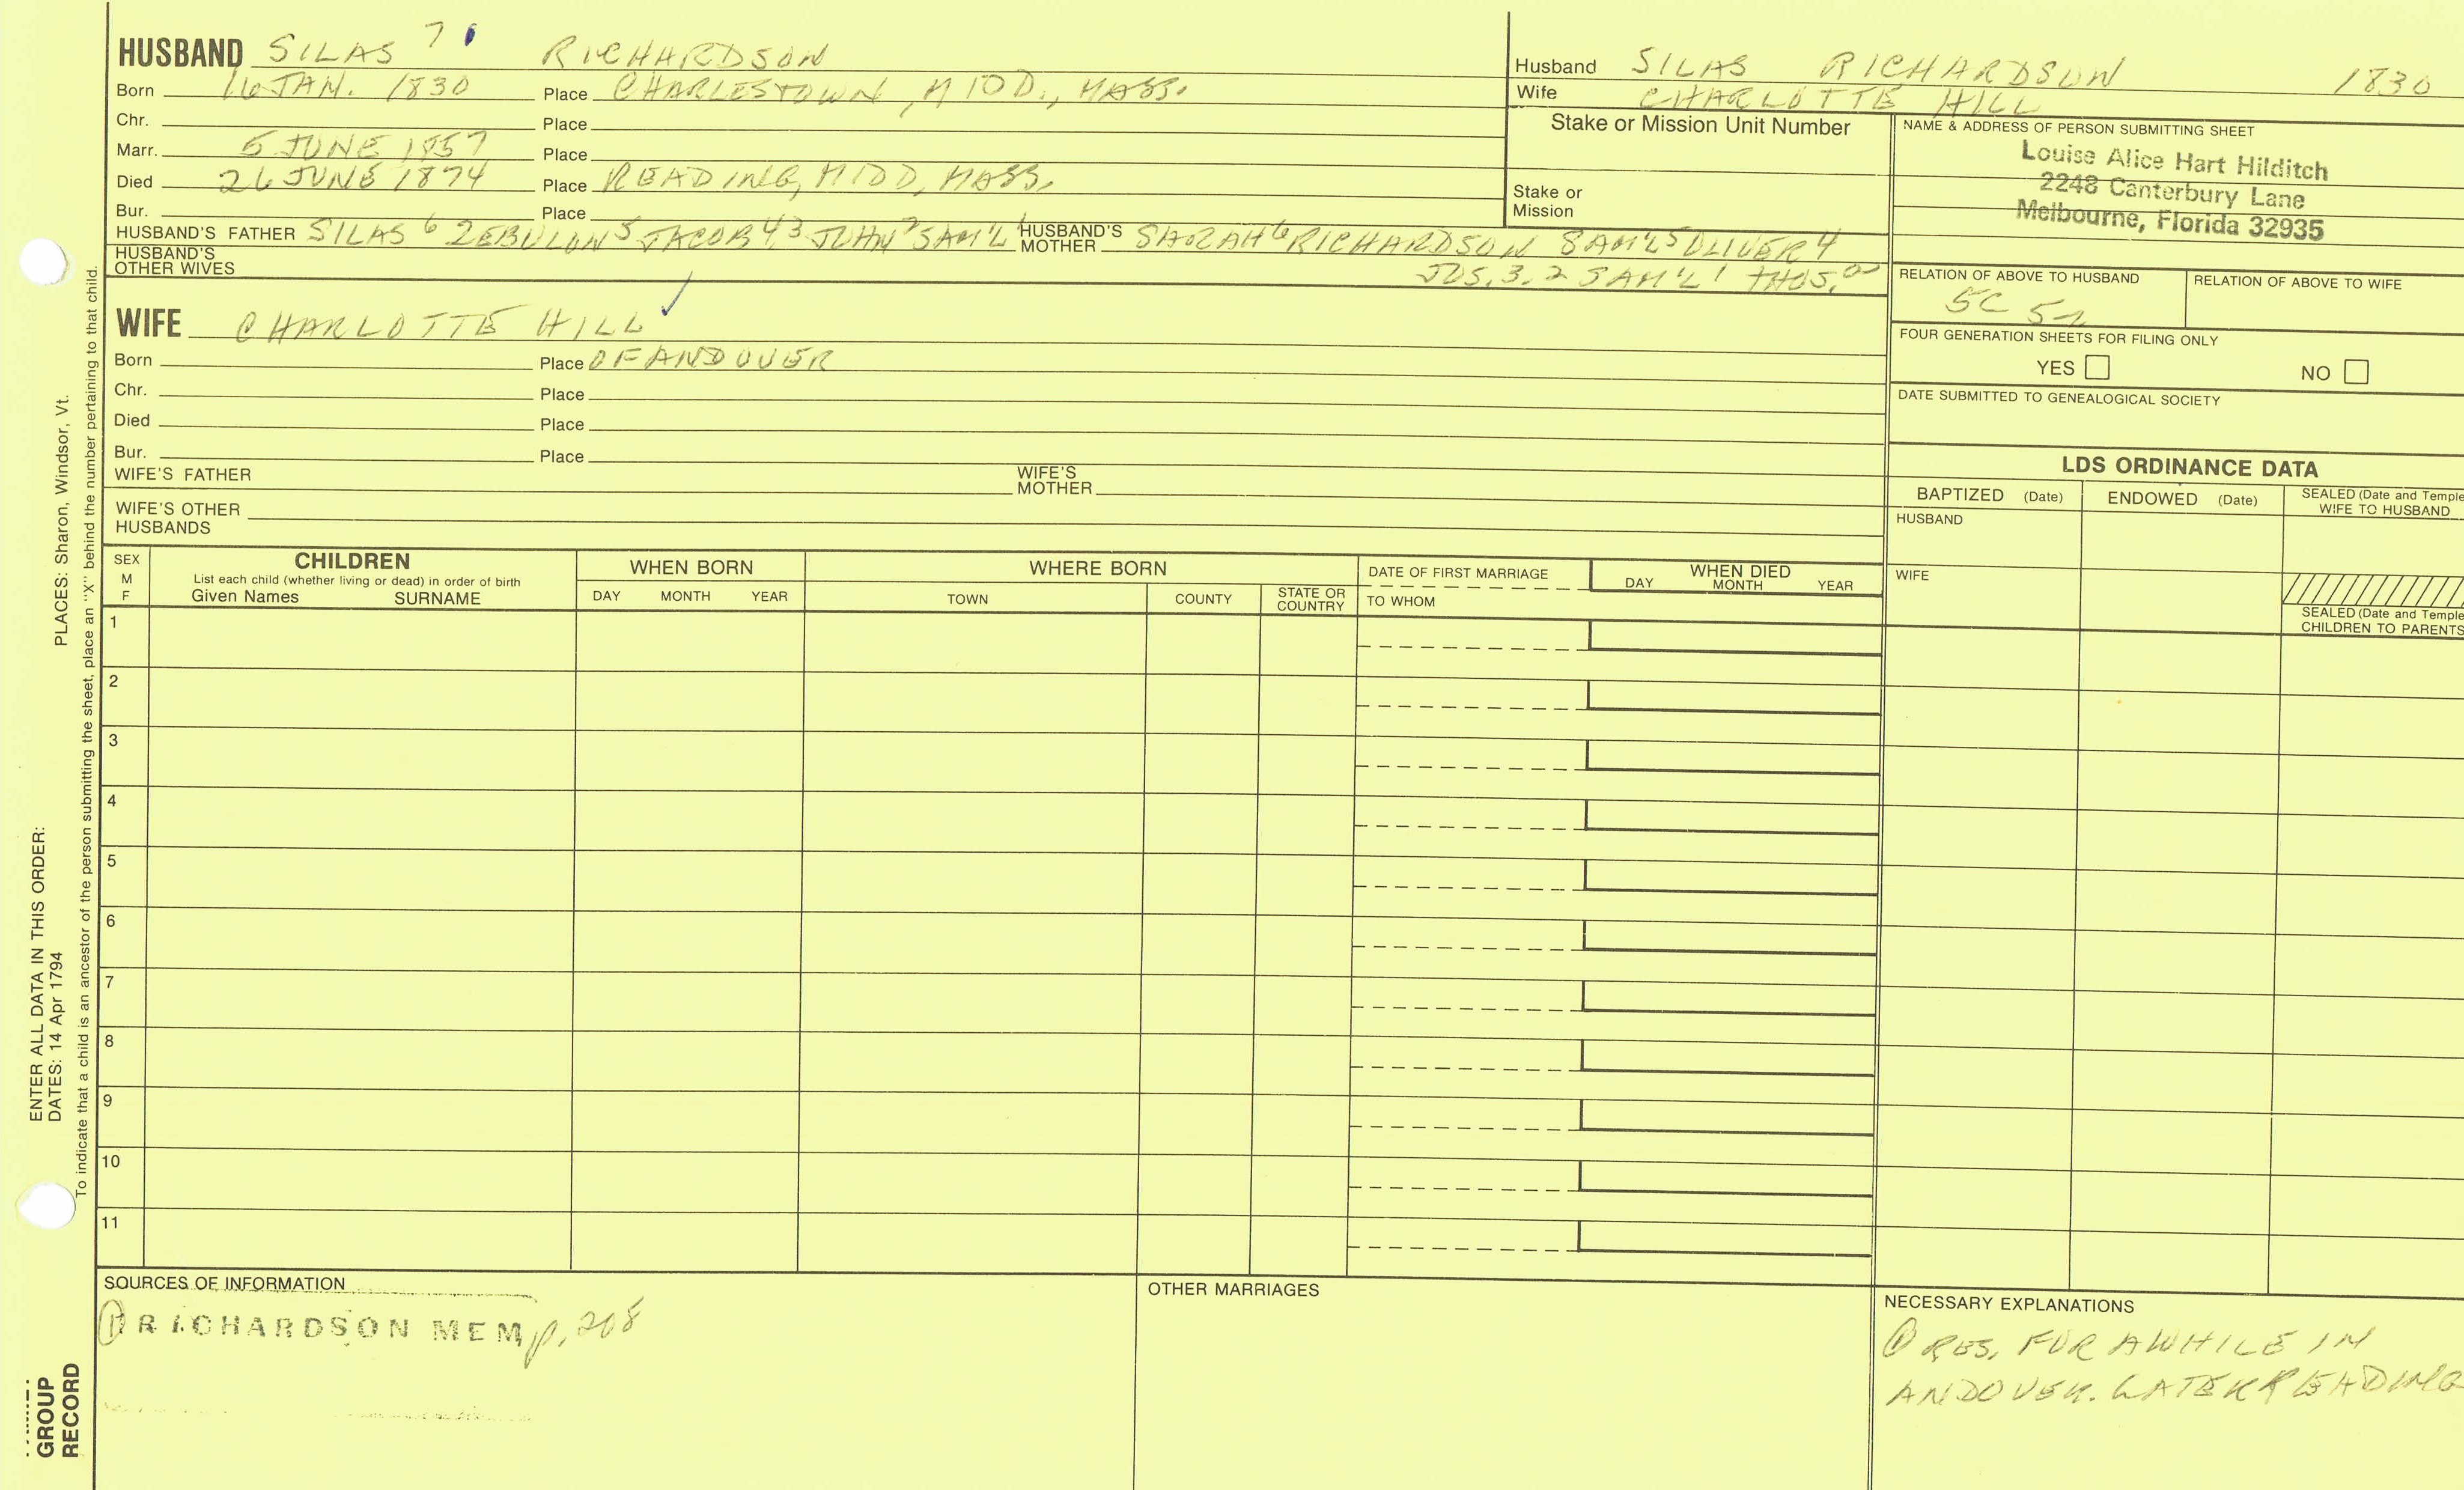 HUSBAND SILAS 7 RICHARDSON
Born 16 JAN. 1830 Place CHARLESTOWN, MIDD., MASS.
Chr. Place
Marr. 5 JUNE 1857 Place
Died 26 JUNE 1874 Place READING, MIDD, MASS.
Bur. Place
HUSBAND'S FATHER SILAS 6 ZEBULON 5 JACOB 4,3 JOHN 2 SAM'L 1 HUSBAND'S MOTHER SARAH 6 RICHARDSON SAM'L 5 OLIVER 4
HUSBAND'S OTHER WIVES JOS. 3, 2 SAM'L 1 THOS.
WIFE CHARLOTTE HILL ✓
Born Place OF ANDOVER
Chr. Place
Died Place
Bur. Place
WIFE'S FATHER WIFE'S MOTHER
WIFE'S OTHER HUSBANDS
Husband SILAS RICHARDSON 1830
Wife CHARLOTTE HILL
Stake or Mission Unit Number
Stake or Mission
NAME & ADDRESS OF PERSON SUBMITTING SHEET
Louise Alice Hart Hilditch
2248 Canterbury Lane
Melbourne, Florida 32935
RELATION OF ABOVE TO HUSBAND RELATION OF ABOVE TO WIFE
5C 5r
FOUR GENERATION SHEETS FOR FILING ONLY
YES NO
DATE SUBMITTED TO GENEALOGICAL SOCIETY
LDS ORDINANCE DATA
BAPTIZED (Date) ENDOWED (Date) SEALED (Date and Temple
WIFE TO HUSBAND
HUSBAND
WIFE
SEALED (Date and Temple
CHILDREN TO PARENTS
SEX
M
F
CHILDREN
List each child (whether living or dead) in order of birth
Given Names SURNAME
WHEN BORN
DAY MONTH YEAR
WHERE BORN
TOWN COUNTY STATE OR COUNTRY
DATE OF FIRST MARRIAGE
TO WHOM
WHEN DIED
DAY MONTH YEAR
1
2
3
4
5
6
7
8
9
10
11
SOURCES OF INFORMATION
① RICHARDSON MEM p. 208
OTHER MARRIAGES
NECESSARY EXPLANATIONS
① RES. FOR AWHILE IN
ANDOVER. LATER READING
ENTER ALL DATA IN THIS ORDER:
DATES: 14 Apr 1794 PLACES: Sharon, Windsor, Vt.
To indicate that a child is an ancestor of the person submitting the sheet, place an "X" behind the number pertaining to that child.
GROUP
RECORD